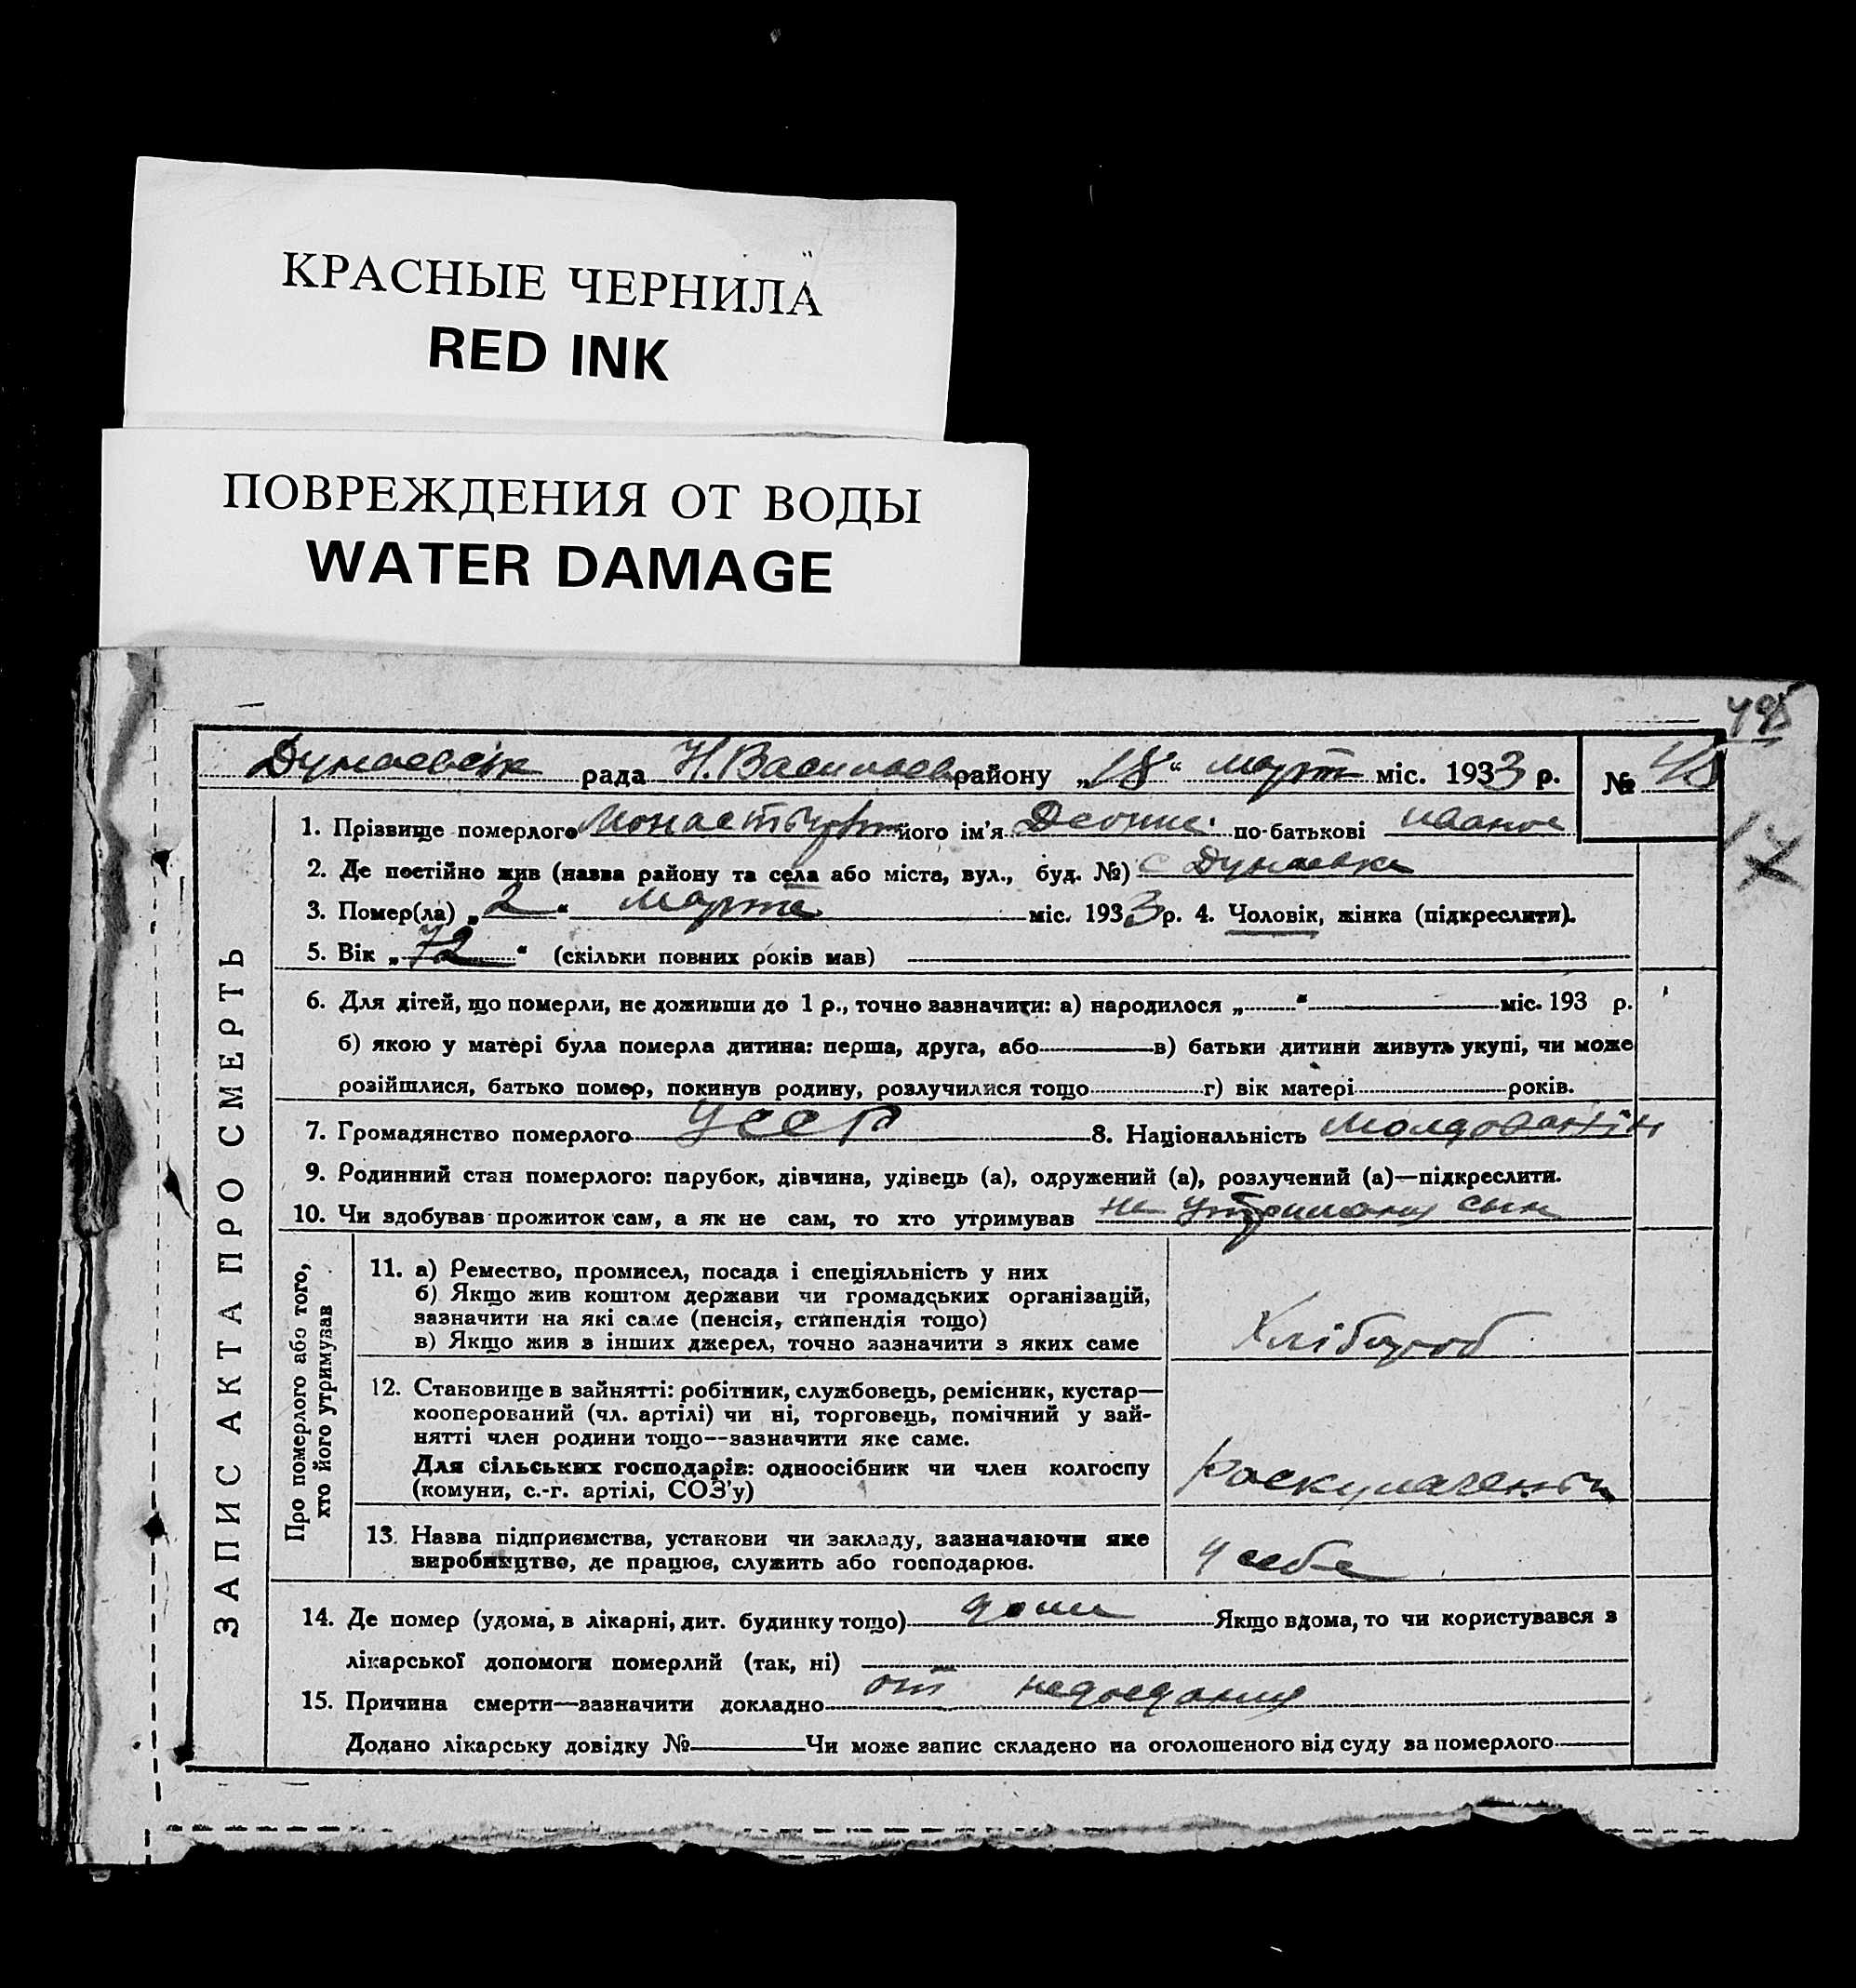 КРАСНЫЕ ЧЕРНИЛА
RED INK
ПОВРЕЖДЕНИЯ ОТ ВОДЫ
WATER DAMAGE
495
Дунаевск рада Н. Василаев району „18“ март міс. 1933 р. № 48
ЗАПИС АКТА ПРО СМЕРТЬ
1. Прізвище померлого його ім'я по-батькові
2. Де постійно жив (назва району та села або міста, вул., буд. №) с Дунаевка
3. Помер(ла) „2“ Марта міс. 1933 р. 4. Чоловік, жінка (підкреслити).
5. Вік „72“ (скільки повних років мав)
6. Для дітей, що померли, не доживши до 1 р., точно зазначити: а) народилося „ “ міс. 193 р.
б) якою у матері була померла дитина: перша, друга, або в) батьки дитини живуть укупі, чи може
розійшлися, батько помер, покинув родину, розлучилися тощо г) вік матері років.
7. Громадянство померлого УССР 8. Національність Молдованін
9. Родинний стан померлого: парубок, дівчина, удівець (а), одружений (а), розлучений (а)—підкреслити.
10. Чи здобував прожиток сам, а як не сам, то хто утримував на утримании сын
Про померлого або того,
хто його утримував
11. а) Ремество, промисел, посада і спеціяльність у них
б) Якщо жив коштом держави чи громадських організацій,
зазначити на які саме (пенсія, стипендія тощо)
в) Якщо жив з інших джерел, точно зазначити з яких саме
Хлібороб
12. Становище в зайнятті: робітник, службовець, ремісник, кустар—
кооперований (чл. артілі) чи ні, торговець, помічний у зай-
нятті член родини тощо--зазначити яке саме.
Для сільських господарів: одноосібник чи член колгоспу
(комуни, с.-г. артілі, СОЗ'у)
Раскулачений
13. Назва підприємства, установи чи закладу, зазначаючи яке
виробництво, де працює, служить або господарює.
у себе
14. Де помер (удома, в лікарні, дит. будинку тощо) доми Якщо вдома, то чи користувався з
лікарської допомоги померлий (так, ні)
15. Причина смерти—зазначити докладно от недоедания
Додано лікарську довідку № Чи може запис складено на оголошеного від суду за померлого